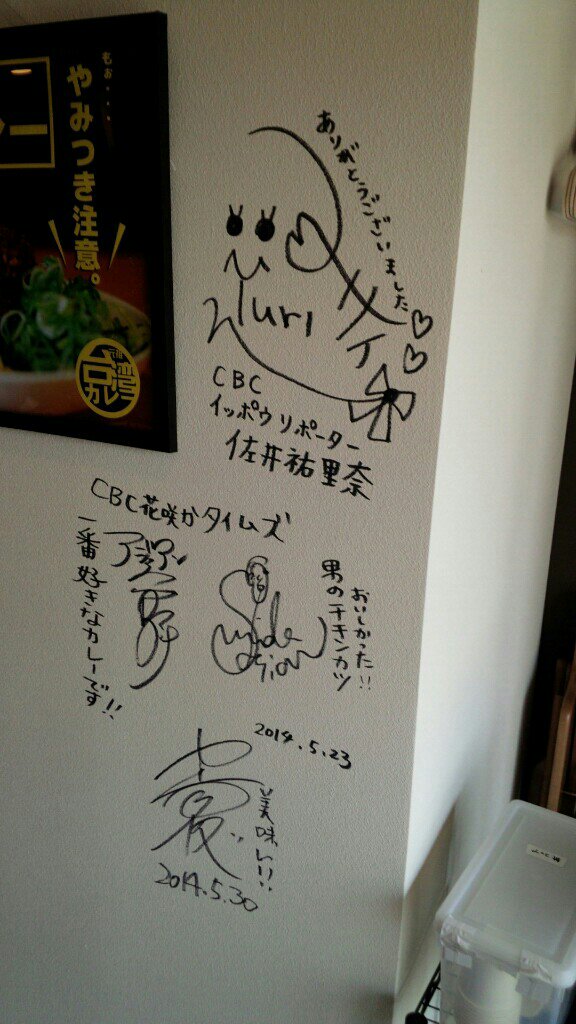 もぉ・・・
やみつき注意。
元祖
台湾
カレー
ありがとうございました
Yuri
CBC
イッポウリポーター
佐井祐里奈
CBC花咲かタイムズ
一番好きなカレーです!!
おいしかった!!
男のチキンカツ
2014.5.23
美味しい!!
2014.5.30